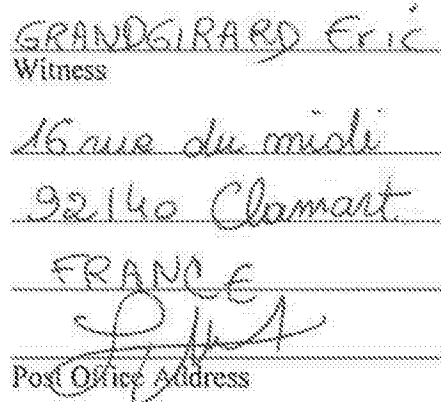 GRANDGIRARD Eric
Witness
16 rue du midi
92140 Clamart
FRANCE
Post Office Address